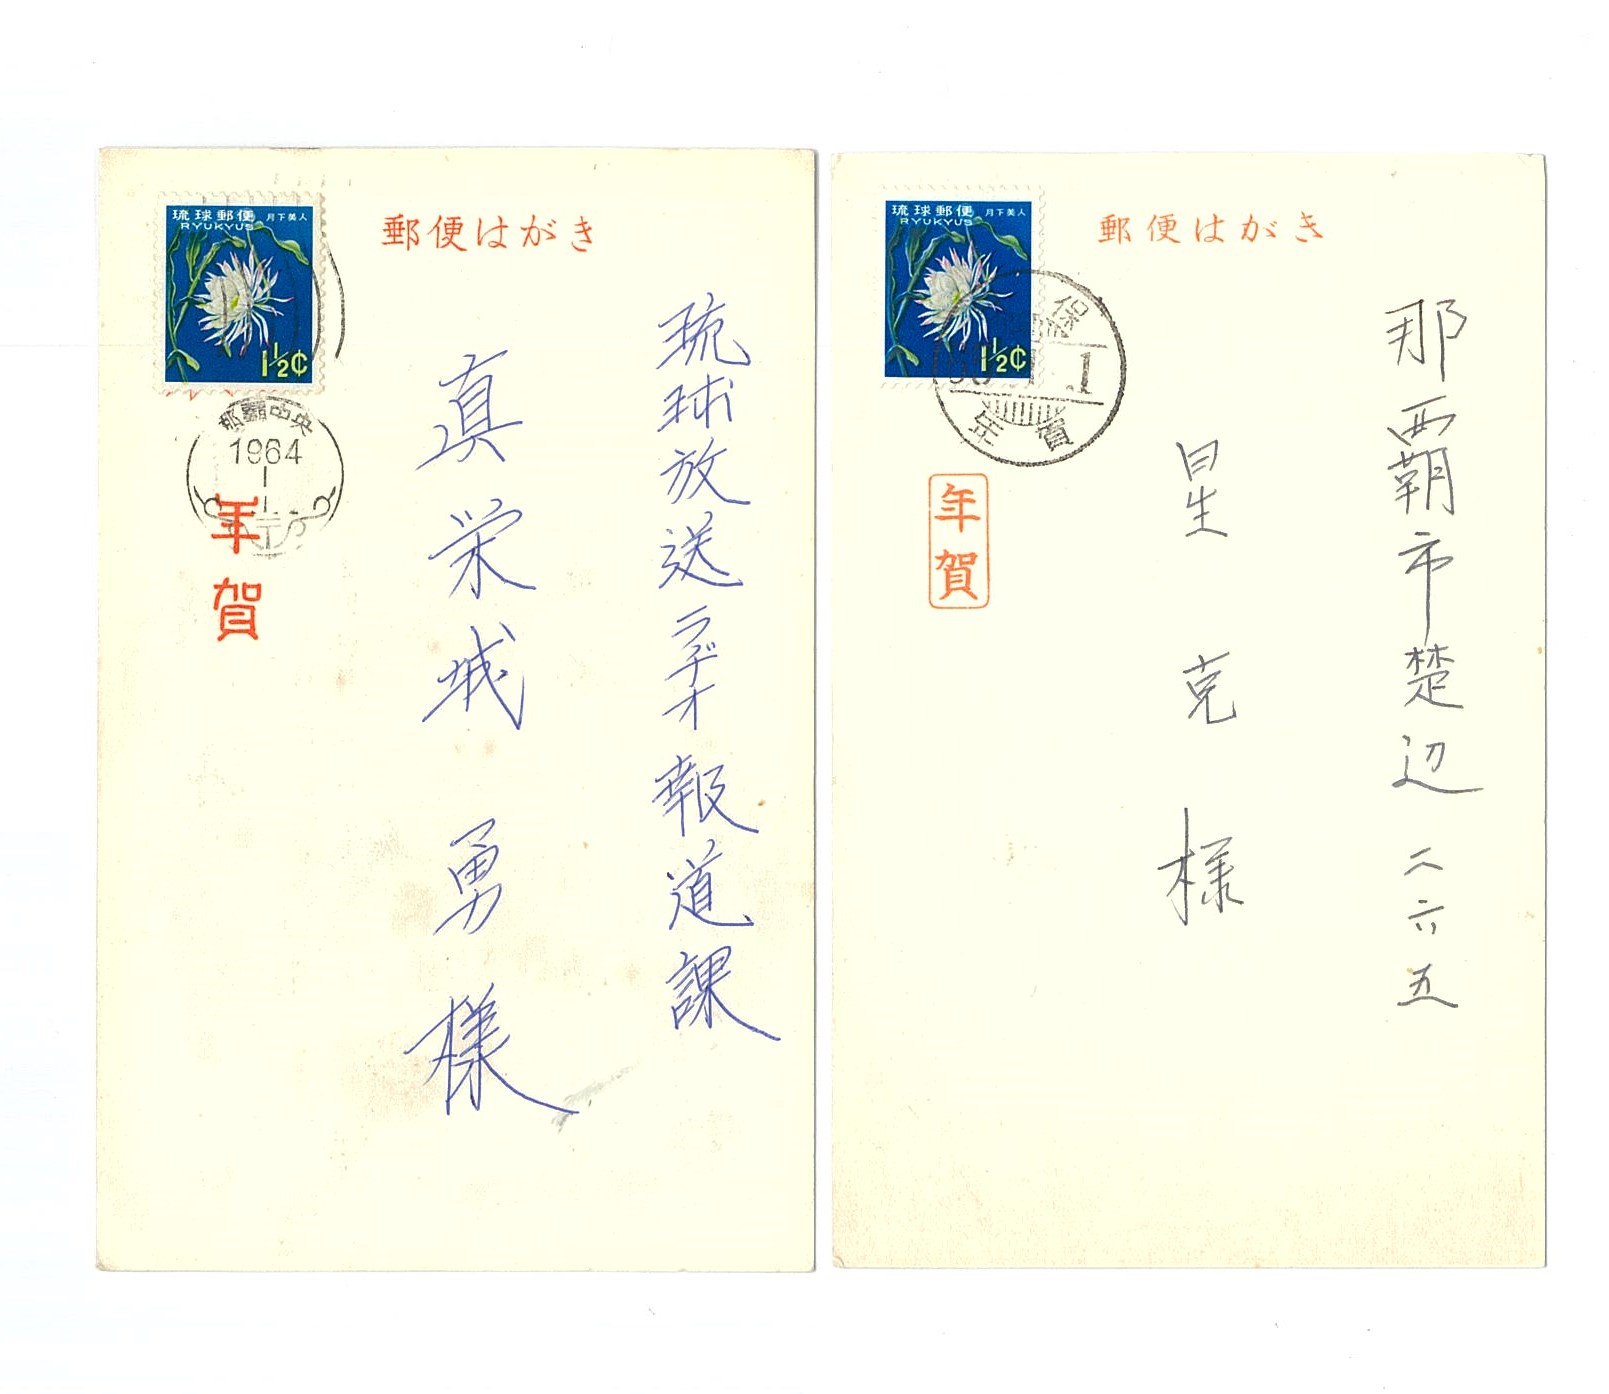 琉球郵便 月下美人
RYUKYUS
1½¢
郵便はがき
那覇中央
1964
1
1
年賀
琉球放送ラヂオ報道課
真栄城 勇 様
琉球郵便 月下美人
RYUKYUS
1½¢
郵便はがき
保
1
年賀
年賀
那覇市楚辺二六五
星 克 様